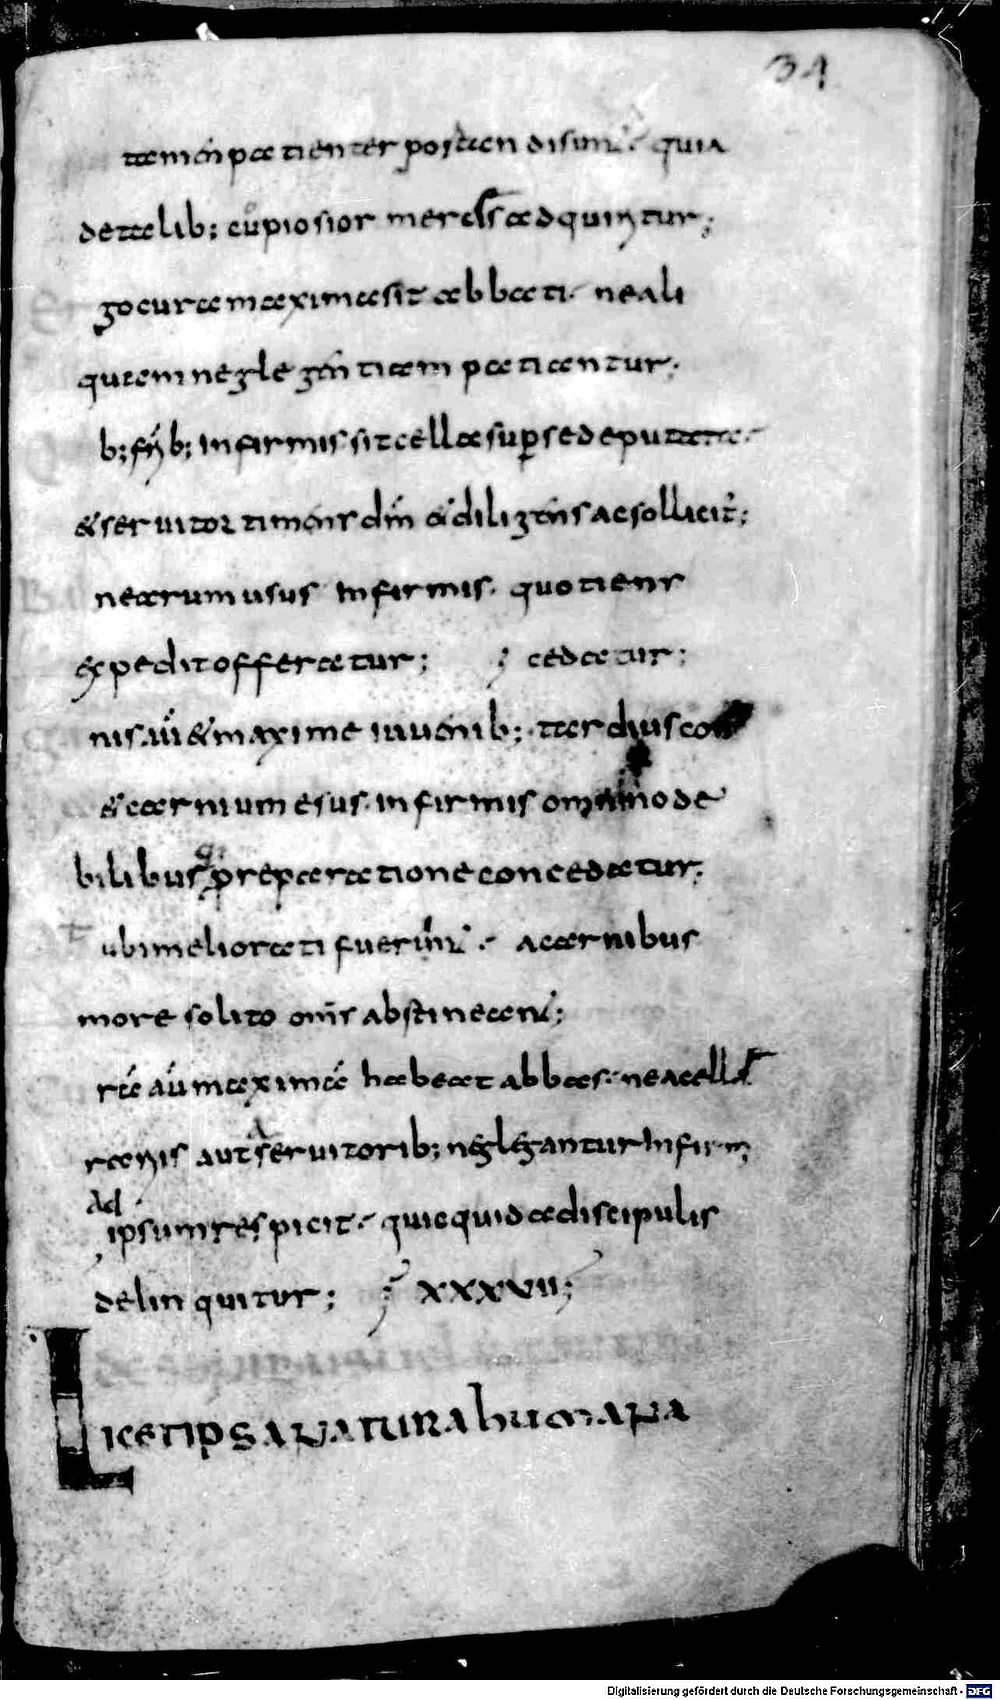 34
tamen patienter portandi sunt quia
de talib; cupiosior merces adquiritur;
go cura maxima sit abbati ne ali
quam neglegentiam patiantur;
b; frīb; infirmis sit cella sup se deputata
& servitor timens dm & diligens ac sollicit;
nearum usus infirmis. quotiens
expedit offeratur; cedatur;
nis aū & maxime iuvenib; tardius con
& carnium esus infirmis omnino de
bilibus p reparatione concedatur;
ubi meliorati fuerint acarnibus
more solito omīs abstineant;
rā aū maximā habeat abbas ne acella
rariis aut servitorib; neglegantur infirmi;
Ad
ipsum respicit quicquid adiscipulis
delinquitur; XXXVII;
Licet ipsa natura humana
Digitalisierung gefördert durch die Deutsche Forschungsgemeinschaft - DFG